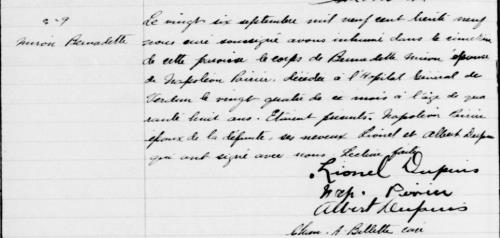 S-9
Miron Bernadette
Le vingt six septembre mil neuf cent trente neuf
nous curé soussigné avons inhumé dans le cimetière
de cette paroisse le corps de Bernadette Miron épouse
de Napoléon Poirier. décédée à l'Hopital Général de
Verdun le vingt quatre de ce mois à l'âge de qua
rante huit ans. Etaient présents. Napoléon Poirier
époux de la défunte, ses neveux Lionel et Albert Dupuis
qui ont signé avec nous. Lecture faite
Lionel Dupuis
Nap. Poirier
Albert Dupuis
A Billette curé